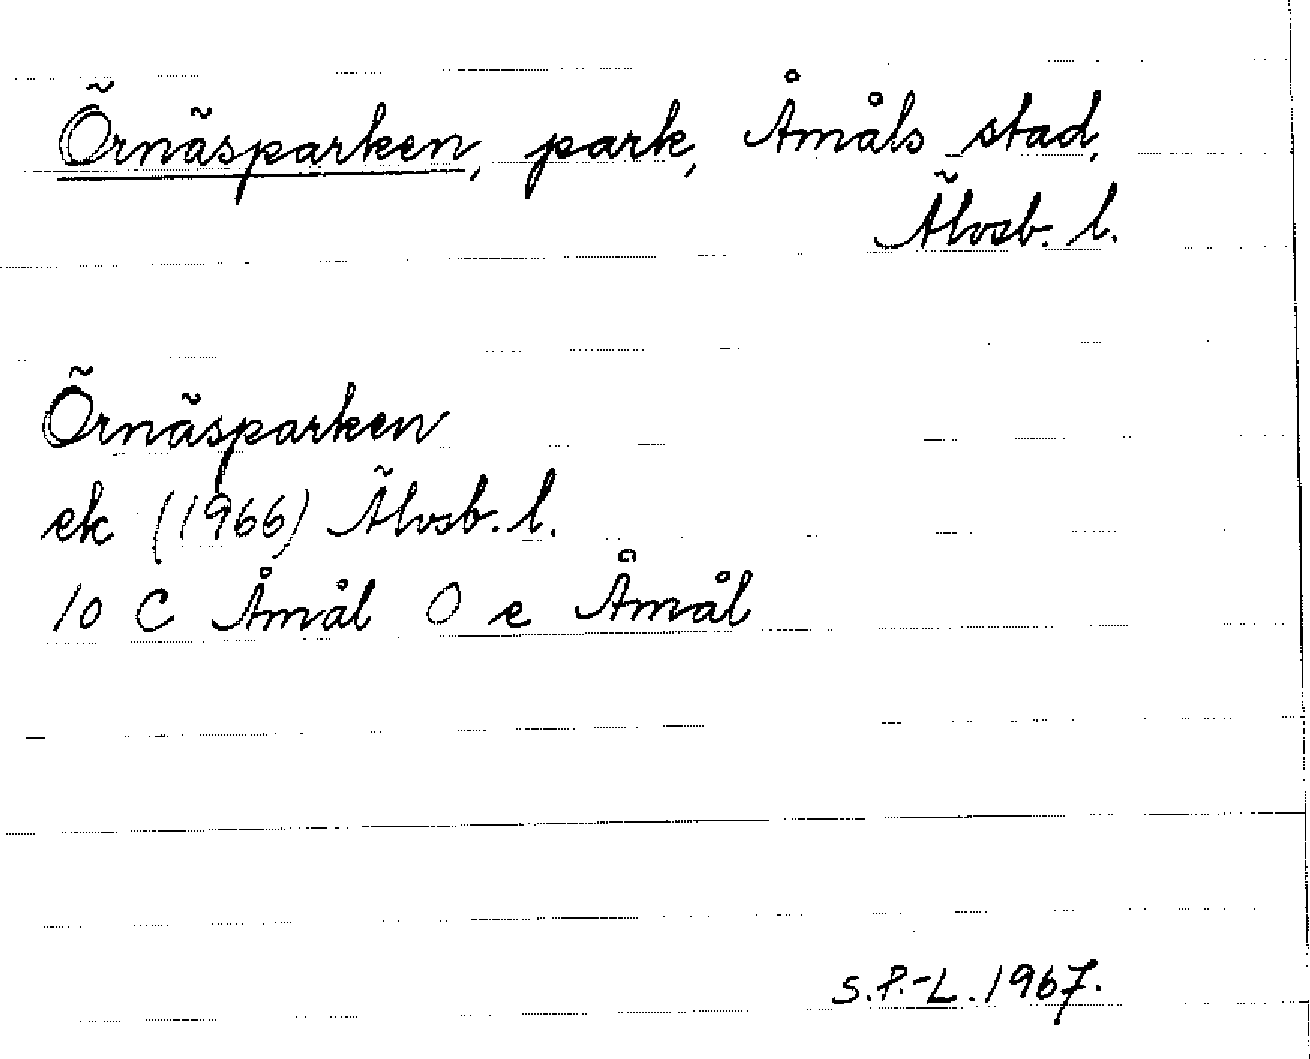 Örnäsparken, park, Åmåls stad,
Älvsb. l.
Örnäsparken
ek (1966) Älvsb. l.
10 C Åmål 0 e Åmål
S.P.-L. 1967.